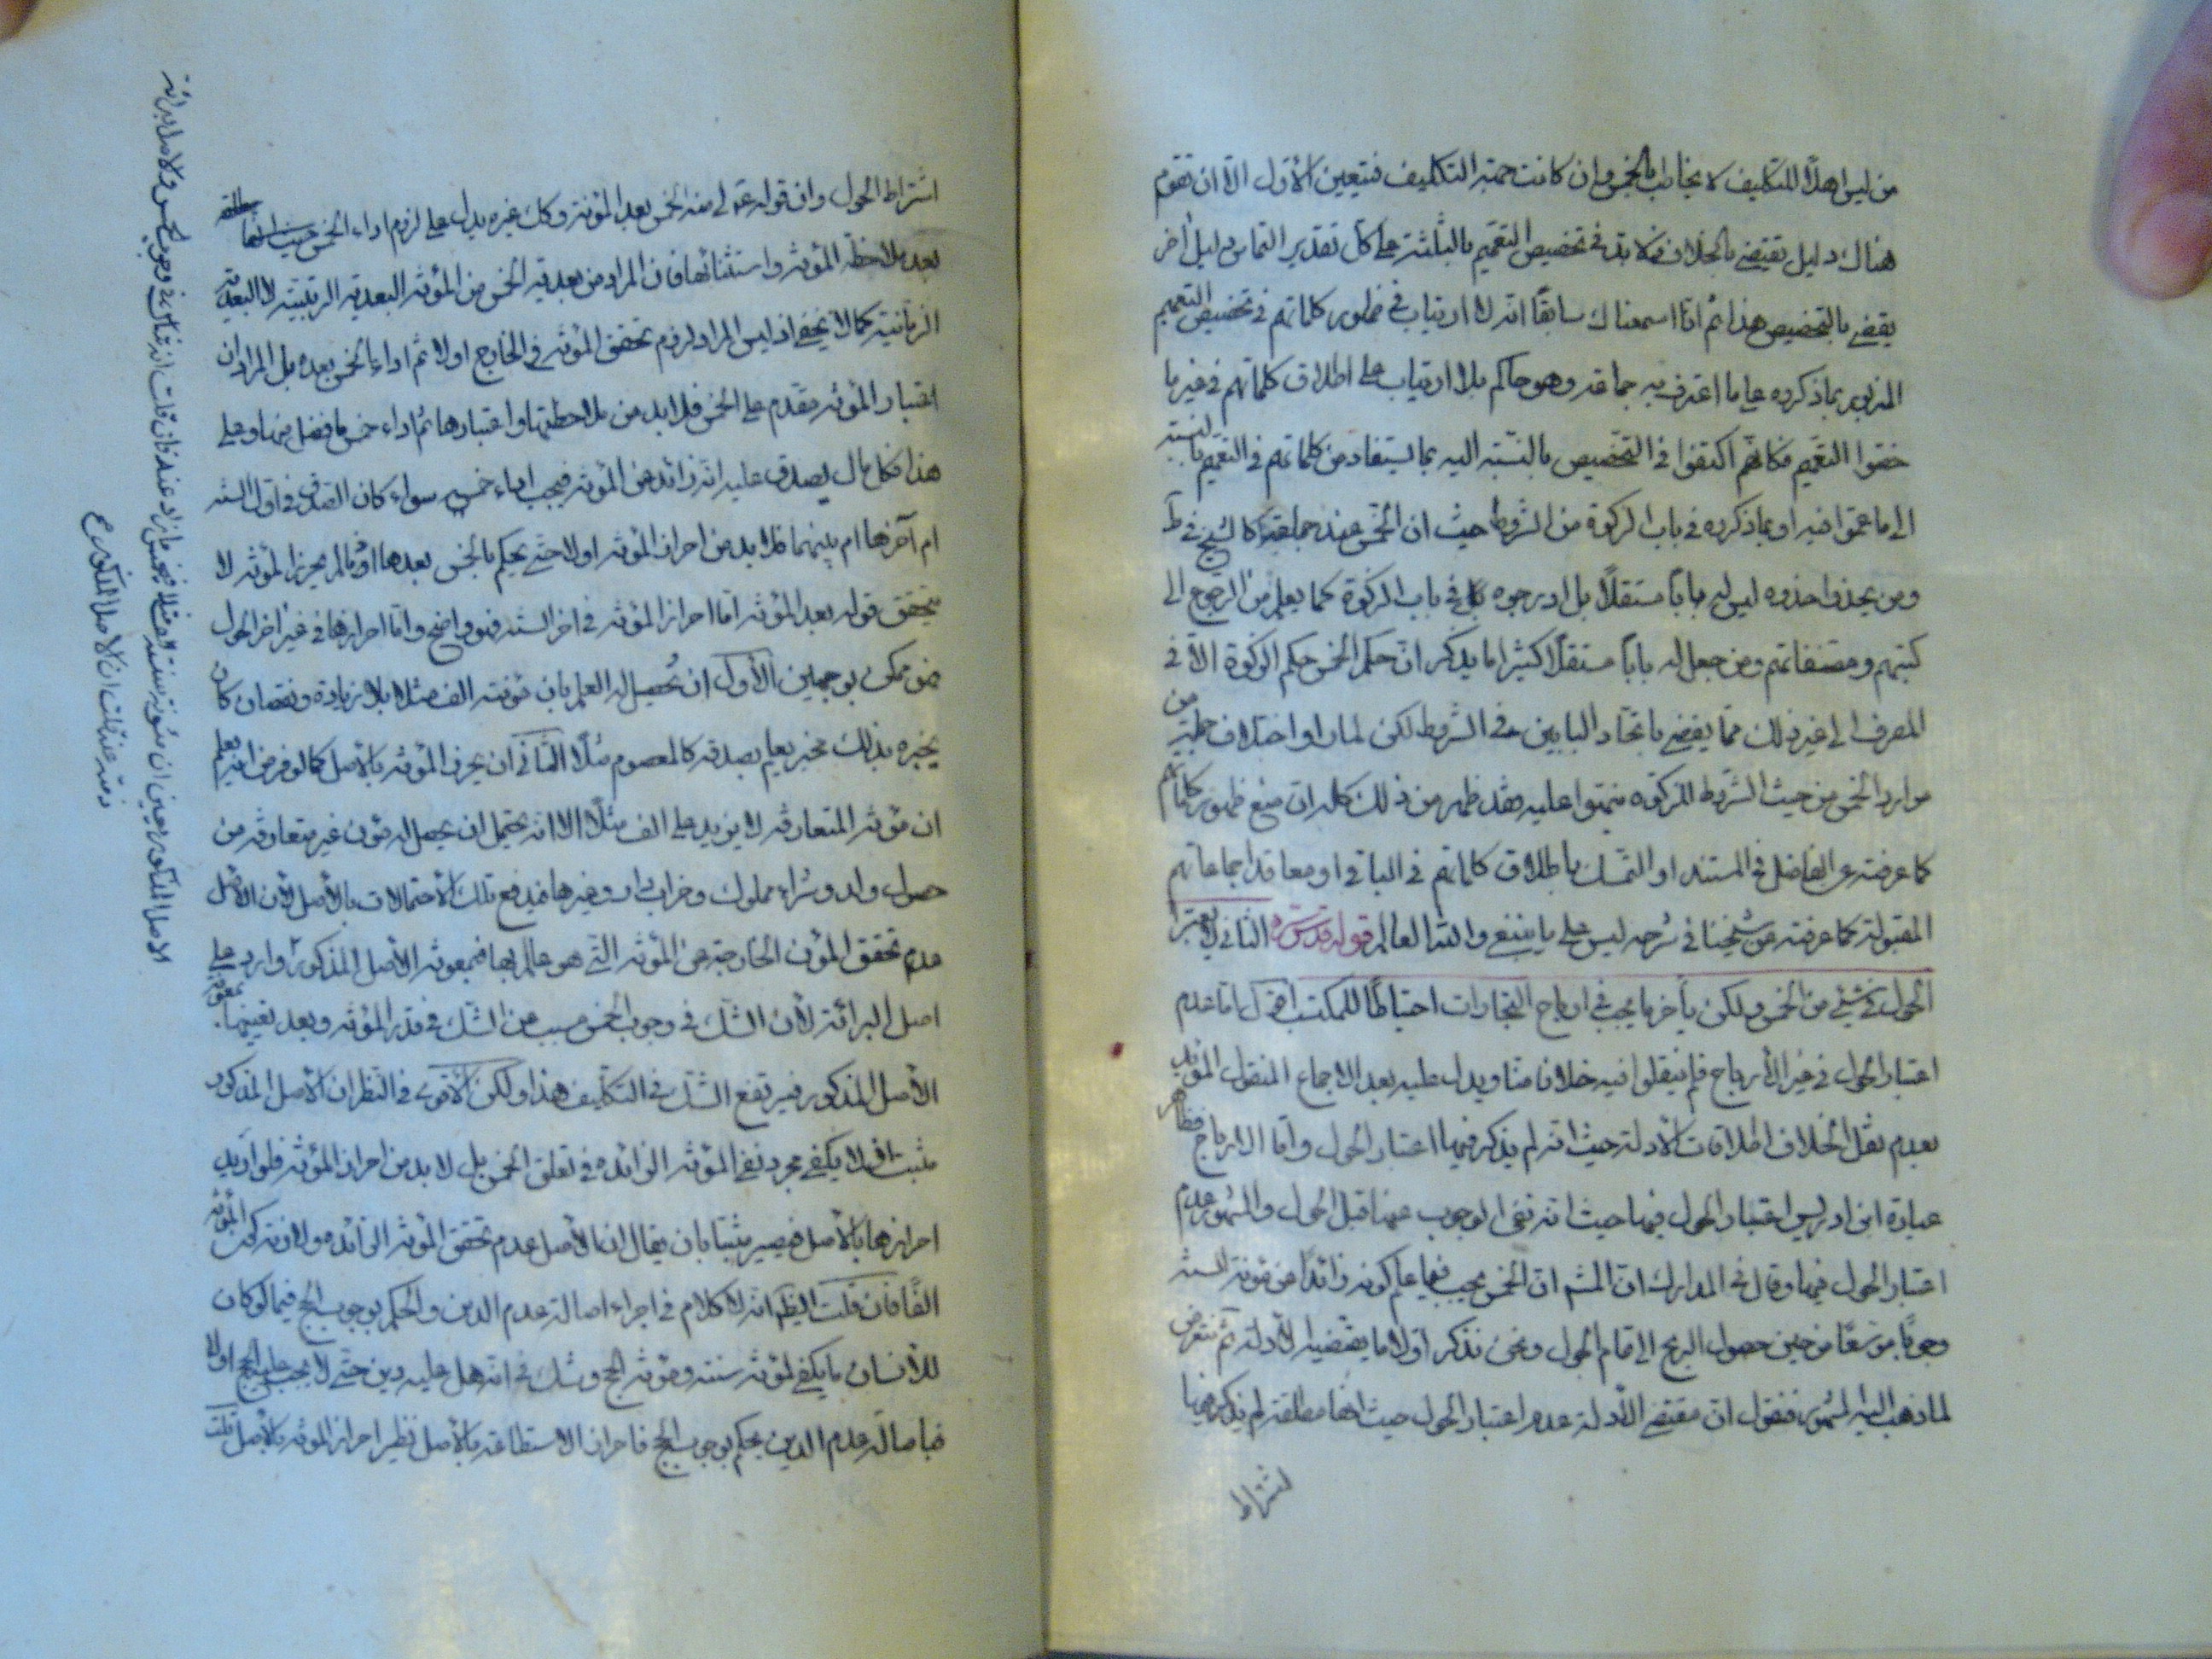 من ليس اهلا للتكليف لا يخاطب بالخمس وان كانت حمته التكليف فتعين الأول الا ان تقوم
هناك دليل تقتضى بالخلاف فلا بد فى تخصيص التعميم بالثلثة على كل تقدير التماس دليل اخر
يقضى بالتخصيص هذا ثم انا اسمعناك سابقًا انه لا ارتياب فى ظهور كلماتهم فى تخصيص التعميم
المزبور بما ذكروه على ما اعترف به جماعة وهو حاكم بلا ارتياب على اطلاق كلماتهم فى غير ما
خصّوا التعميم فكانهم اكتفوا فى التخصيص بالنسبة اليه بما يستفاد من كلماتهم فى التعميم بالنسبة
الى ما عمموا فيه او بما ذكروه فى باب الزكوة من الشروط حيث ان الخمس عند جماعة كالشيخ فى ط
ومن يحذو حذوه ليس له بابًا مستقلًا بل ادرجوه فى باب الزكوة كما يعلم من الرجوع الى
كتبهم ومصنفاتهم ومن جعل له بابًا مستقلًا كثيرا ما يذكر ان حكم الخمس حكم الزكوة الا فى
المصرف الى غير ذلك مما يقضى باتحاد البابين فى الشروط لكن لما راوا اختلاف جملة من
موارد الخمس من حيث الشروط المذكوره نبهوا عليه فقد ظهر من ذلك كله ان منع ظهور كلماتهم
كما عرفته عن الفاضل فى المستند او التمسك باطلاق كلماتهم فى الباقى او معاقد اجماعاتهم
المقبولة كما عرفته عن شيخنا فى شرحه ليس على ما ينبغى والله العالم قوله قدس سره الثانى لا يعتبر
الحول فى شئ من الخمس ولكن يأخر ما يجب فى ارباح التجارات احتياطًا للمكتسب اقول اما عدم
اعتبار الحول فى غير الأرباح فلم ينقلوا فيه خلافا منا ويدل عليه بعد الاجماع المنقول المؤيد
بعدم نقل الخلاف اطلاقات الأدلة حيث انه لم يذكر فيها اعتبار الحول واما الارباح فظاهر
عبارة ابن ادريس اعتبار الحول فيها حيث انه نفى الوجوب عنها قبل الحول والمشهور عدم
اعتبار الحول فيها وقال فى المدارك ان المشهور ان الخمس يجب فيما علم كونه زائدًا عن مؤنة السنة
وجوبًا موسعًا من حين حصول الربح الى تمام الحول ونحن نذكر اولا ما يقتضيه الأدلة ثم نتعرض
لما ذهب اليه المشهور فنقول ان مقتضى الأدلة عدم اعتبار الحول حيث انها مطلقة لم يذكر فيها
اشتراط
اشتراط الحول وان قوله ع فى منه الخمس بعد المؤنة وكك غيره يدل على لزوم اداء الخمس حيث انها مطلقة
بعد ملاحظة المؤنة واستثنائها فان المراد من بعدية الخمس من المؤنة البعدية الرتبية لا البعدية
الزمانية كما لا يخفى اذ ليس المراد لزوم تحقق المؤنة فى الخارج اولا ثم اداء الخمس بعده بل المراد ان
اعتبار المؤنة مقدم على الخمس فلا بد من ملاحظتها واعتبارها ثم اداء خمس ما فضل منها وعلى
هذا فكل مال يصدق عليه انه زائد عن المؤنة فيجب اداء خمسه سواء كان الصدق فى اول السنة
ام آخرها ام بينهما فلا بد من احراز المؤنة اولا حتى يحكم بالخمس بعدها او فما لم يحرز المؤنة لا
يتحقق قوله بعد المؤنة اما احراز المؤنة فى اخر السنة فهو واضح واما احرازها فى غير اخر الحول
فهو ممكن بوجهين الأول ان يحصل له العلم بان مؤنته الف مثلا بلا زيادة ونقصان كان
يخبره بذلك مخبر يعلم بصدقه كالمعصوم مثلًا الثانى ان يحرز المؤنة بالأصل كما لو فرض انه يعلم
ان مؤنته المتعارفة لا يزيد على الف مثلًا الا انه يحتمل ان يحصل له مؤن غير متعارفة من
حصول ولد وشراء مملوك وخراب دار وغيرها فيدفع تلك الأحتمالات بالأصل لأن الأصل
عدم تحقق المؤن الخارجة عن المؤنة التى هو عالم بها فبمعونة الأصل المذكور وارد على
اصل البرائة لأن الشك فى وجوب الخمس مسبب عن الشك فى قدر المؤنة وبعد تعيينها بمعونة
الأصل المذكور فيرتفع الشك فى التكليف هذا ولكن الأقوى فى النظر ان الأصل المذكور
مثبت اذ لا يكفى مجرد نفى المؤنة الزائده فى تعلق الخمس بل لا بد من احراز المؤنة فلو اريد
احرازها بالأصل فيصير مثبتا بان يقال ان الأصل عدم تحقق المؤنة الزائده ولازمه كون المؤنة
الفًا فان قلت انه لا كلام فى اجراء اصالة عدم الدين والحكم بوجوب الحج فيما لو كان
للأنسان ما يكفى لمؤنة سنته ومؤنة الحج وشك فى انه هل عليه دين حتى لا يجب عليه الحج اولا
فباصالة عدم الدين يحكم بوجوب الحج فاحراز الاستطاعة بالأصل نظير احراز المؤنة بالأصل قلت